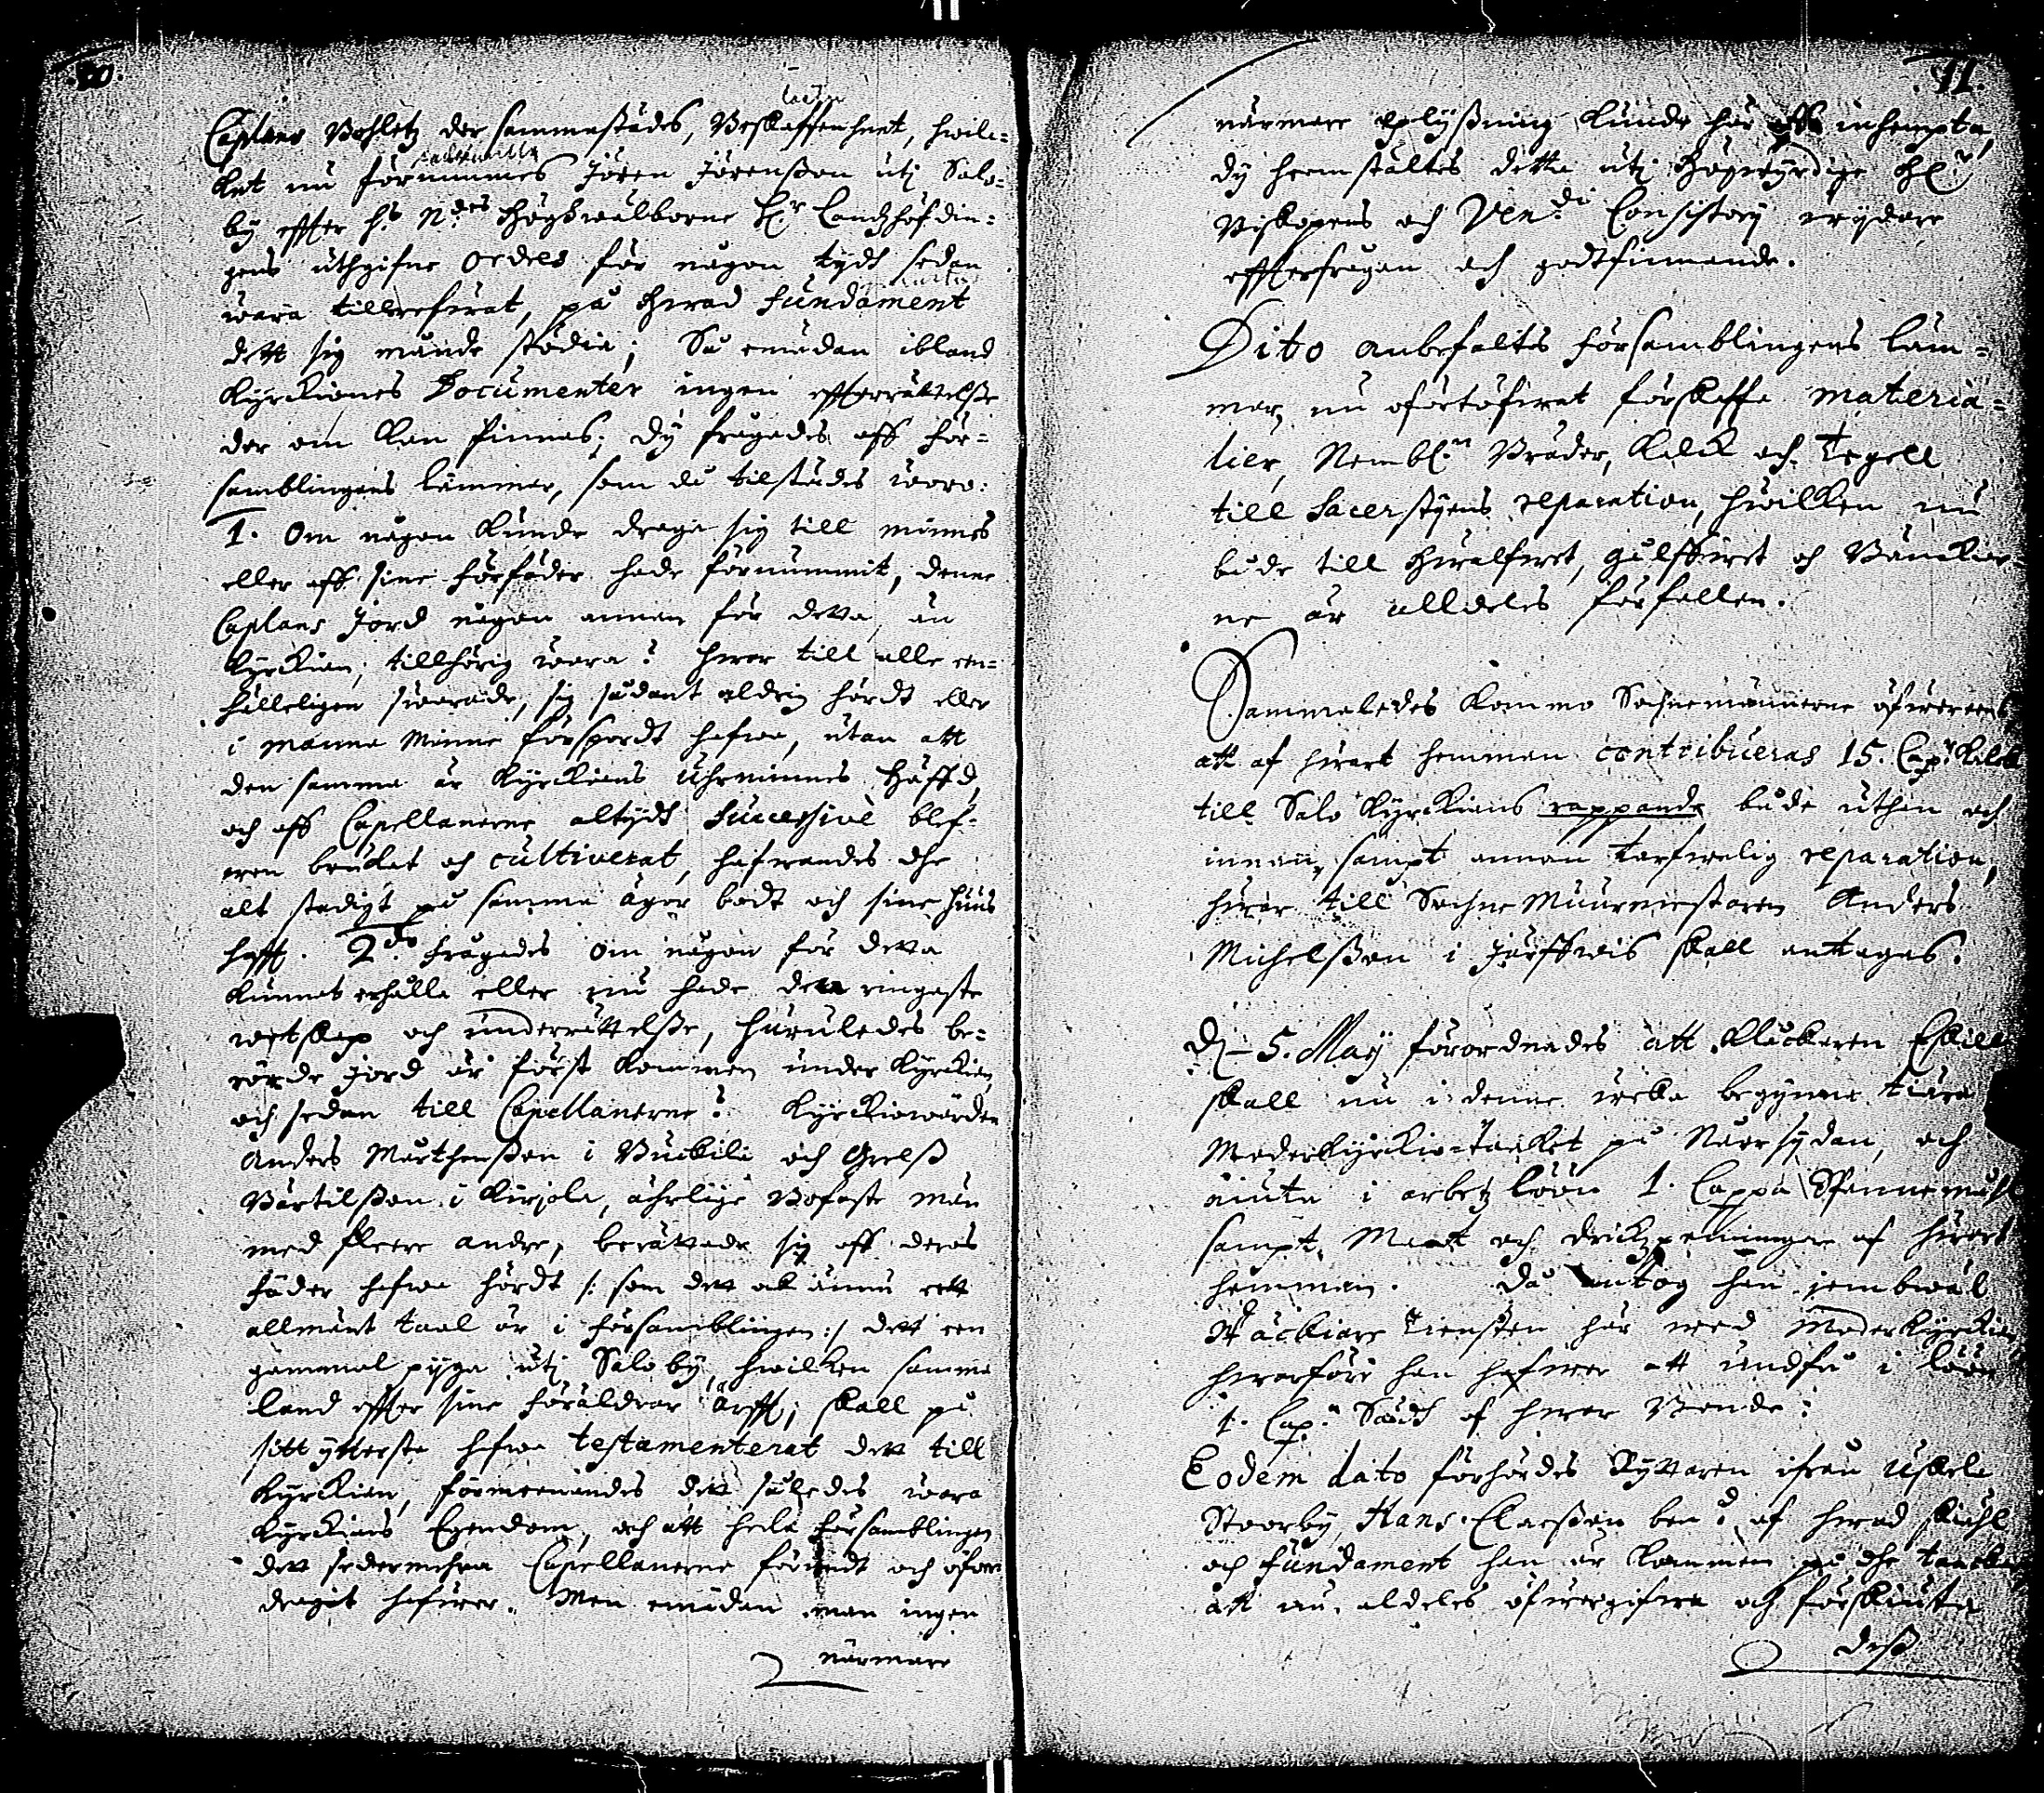 Caplans Bohletz der sammastädes, Beskaffenheet, hwil-
ket nu förnummes Jören Jörensson uti Salo-
by effter H:s N:des Höghwälborne H:r Landzhöfdin-
gens uthgifne ordres för någon tydt sedan
wara tillrefererat, på hwad fundament
dett sig månde stödia; Så emädan ibland
Kyrckiones Documenter ingen effterrättelsse
der om kan finnas; Dy frågades aff för-
samblingens lämmer, som då tilstädes woro:
1. Om någon kunde draga sig till minnes
eller aff sine förfäder hade förnummit, denne
Caplans Jord någon annan för detta, än
Kyrckian, tillhörig wara? hwar till alle en-
hälleligen swarade, sig sådant aldrig hördt eller
i manna Minne försport hafwa, utan att
den samma är Kyrckians Uhrminnes Häffd,
och aff Capellanerne altydt successivè blef-
wen brukat och cultiverat, hafwandes dhe
alt stadigt på samma äger bodt och sine huus
hafft. 2:do frågades om någon för detta
kunnat erhålla eller nu hade den ringaste
wetskap och underrättelsse, huruledes be-
rörde Jord är först kommen under Kyrckian
och sedan till Capellanerne? Kyrckiowärden
Anders Mårthensson i Vuckili och Grels
Bärtilsson i Kirjola, ährlige Bofaste män
med fleere andre, berättade sig aff deras
fäder hafwa hördt /: som det ock ännu ett
allmänt taal är i församblingen :/ dett een
gammal pyga uti Saloby, hwilken samma
land effter sine föräldrar ärfft, skall på
sitt ytterste hafwa testamenterat det till
Kyrckian, förmeenandes det således wara
Kyrckians Egendom, och att hela församblingen
det sedermehra Capellanerne förändt och ofwer
dragit hafwer. Men emädan man ingen
närmare
11.
närmare oplyssning kunde här inhempta,
dy heemstältes detta uti Högwyrdige H:r
Biskopens och Ven:di Consistorij wydare
effterfrågan och godtfinnande.
Dito anbefaltes församblingens läm-
mar nu oförtöfwat förskaffa materia-
lier, Nembl:n Bräder, Kalck och Tegell
till Sacerstyens reparation, hwilken nu
både till hwalfwet, gulffwet och Bänckior
ne är alldeles förfallen.
Sammaledes kommo Sochnemännerne öfwereens
att af hwart hemman contribueras 15. Cap:r Kalck
till Salo Kyrckians rappande både uthan och
innan, sampt annan tarfwelig reparation,
hwar till Sochne Muurmestaren Anders
Michelsson i Järffwis skall anttages.
D: 5. Maij förordnades att Klåckaren Eskill
skall nu i denne wecka begynna tiära
Moderkyrckiotaaket på Norrsydan, och
niuta i arbetz löön 1. Cappa Spannemåhl
sampt Maat och drickzpenningar af hwart
hemman. Då antog han jembwäl
Stäckiare tiensten här wed Moderkyrckian,
hwarföre han hafwer att undfå i löön
1. Cap:a Sädh af hwar Bonde:
Eodem dato förhördes Ryttaren ifrån Uskela
Stoorby, Hans Claesson ben:d af hwad skiähl
och fundament han är kommen på dhe tanckar
att nu aldeles öfwergifwa och förskiuta
dess